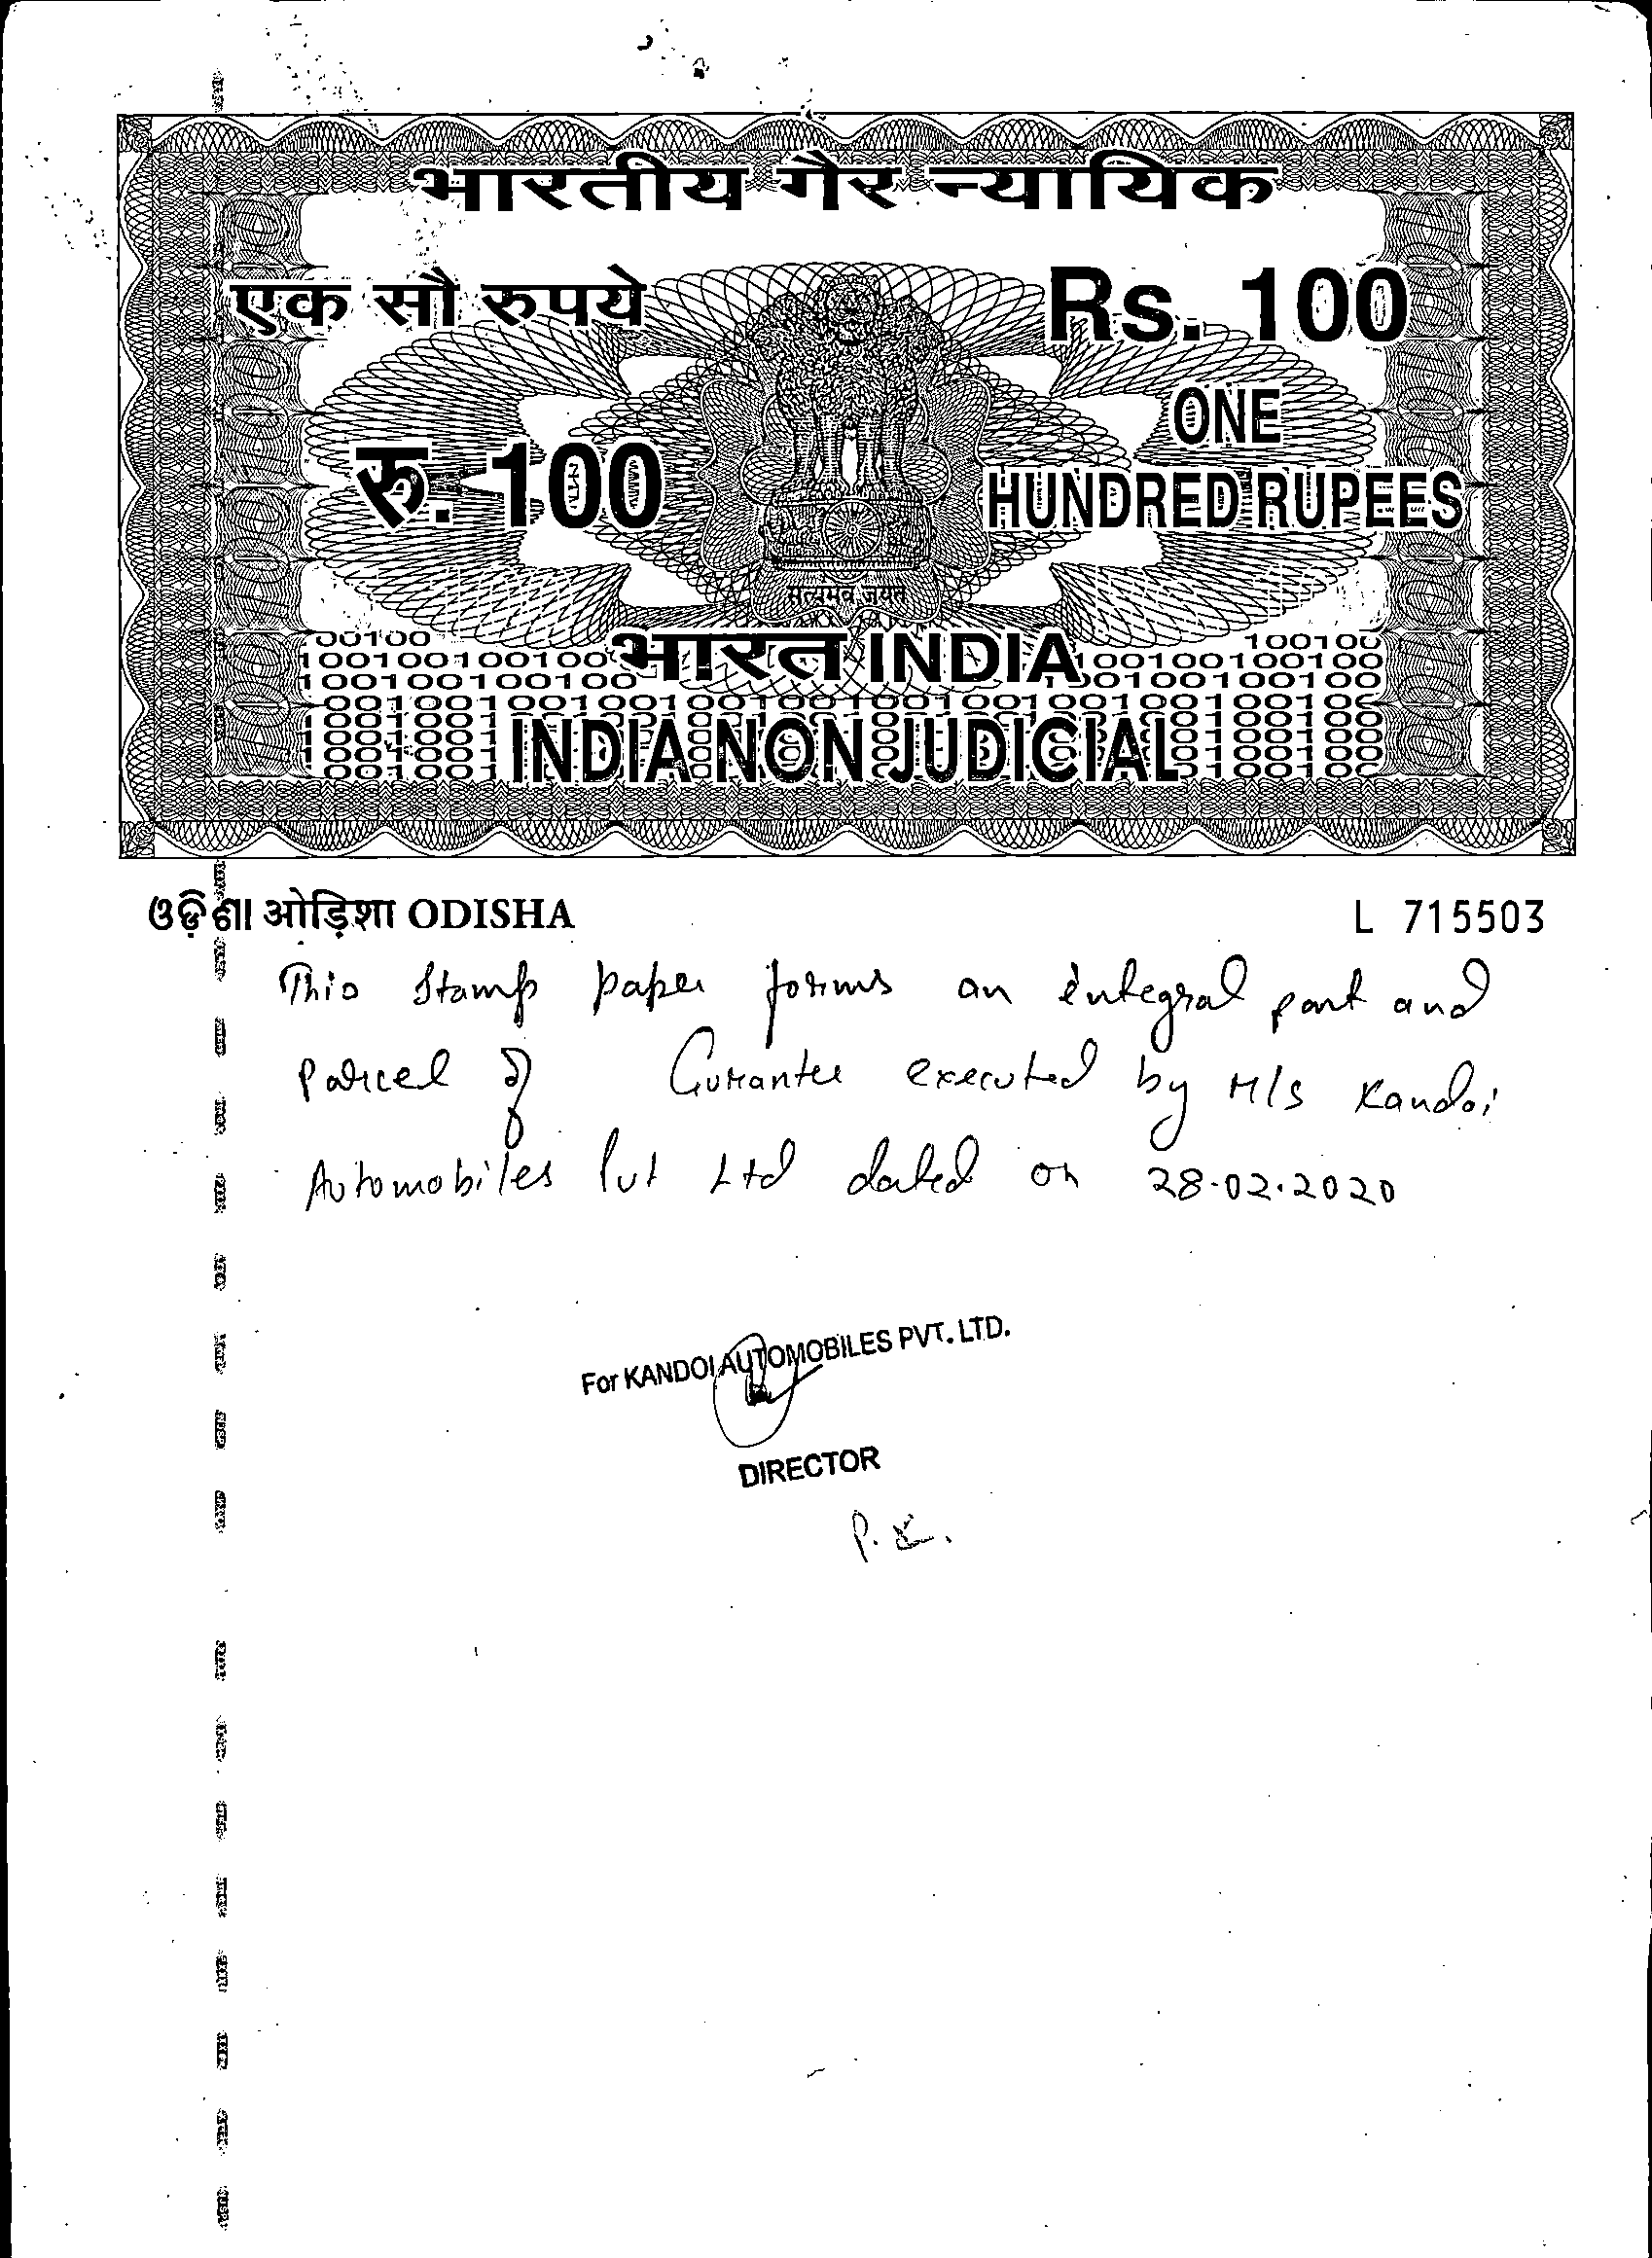 भारतीय गैर न्यायिक
एक सौ रुपये
Rs. 100
रु. 100
ONE
HUNDRED RUPEES
सत्यमेव जयते
भारत INDIA
INDIA NON JUDICIAL
ଓଡ଼ିଶା ओड़िशा ODISHA
L 715503
This Stamp paper forms an integral part and
Parcel of Gurantee executed by M/S Kandoi
Automobiles Pvt Ltd dated on 28.02.2020
For KANDOI AUTOMOBILES PVT. LTD.
DIRECTOR
P. K.